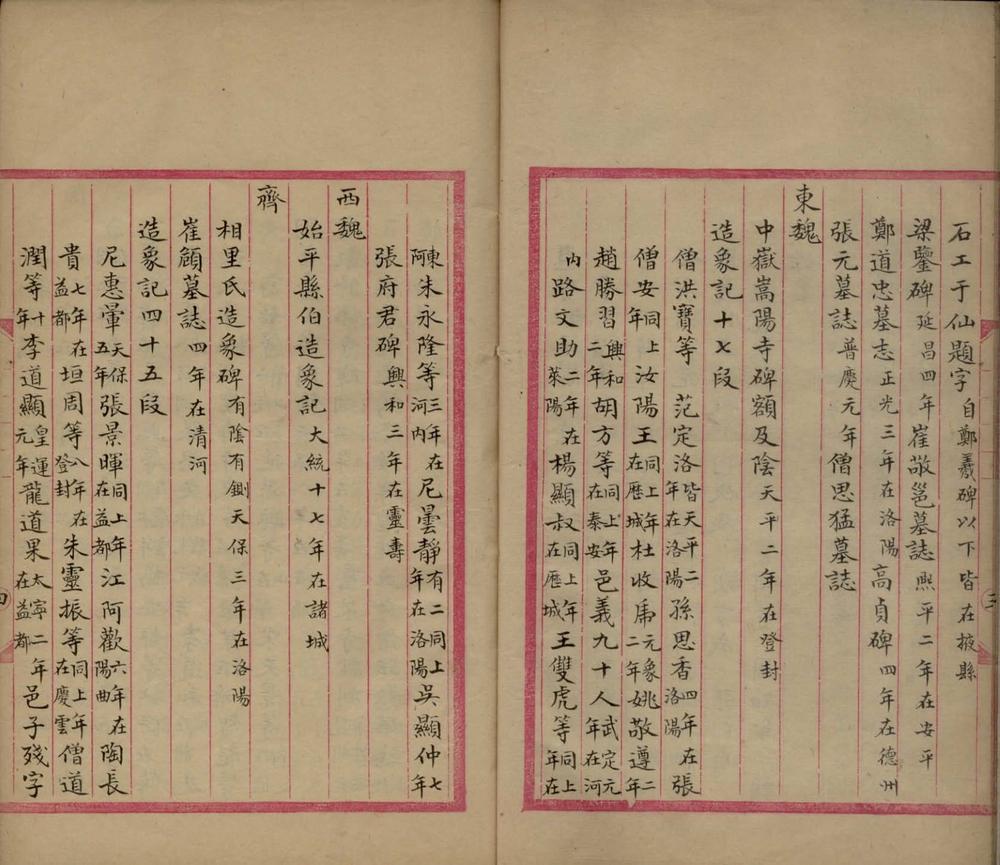 石工于仙題字自鄭羲碑以下皆在掖縣
梁鑒碑延昌四年崔敬邕墓誌熙平二年在安平
鄭道忠墓志正光三年在洛陽高貞碑四年在德州
張元墓誌普慶元年僧思猛墓誌
東魏
中嶽嵩陽寺碑額及陰天平二年在登封
造象記十七段
僧洪寶等范定洛皆天平二年在洛陽孫思香四年在洛陽張
僧安同上年汝陽王同上年在歷城杜收虎元象二年姚敬遵二年
趙勝習興和二年胡方等同上年在泰安邑義九十人武定元年在河
內路文助二年在萊陽楊顯叔同上年在歷城王雙虎等同上年在
東阿朱永隆等三年在河內尼曇靜有二同上年在洛陽吳顯仲七年
張府君碑興和三年在靈壽
西魏
始平縣伯造象記大統十七年在諸城
齊
相里氏造象碑有陰有天保三年在洛陽
崔頠墓誌四年在清河
造象記四十五段
尼惠暈天保五年張景暉同上年在益都江阿歡六年在陽曲陶長
貴七年在益都垣周等八年在登封朱靈振等同上年在慶雲僧道
潤等十年李道顯皇運元年龍道果太寧二年在益都邑子殘字